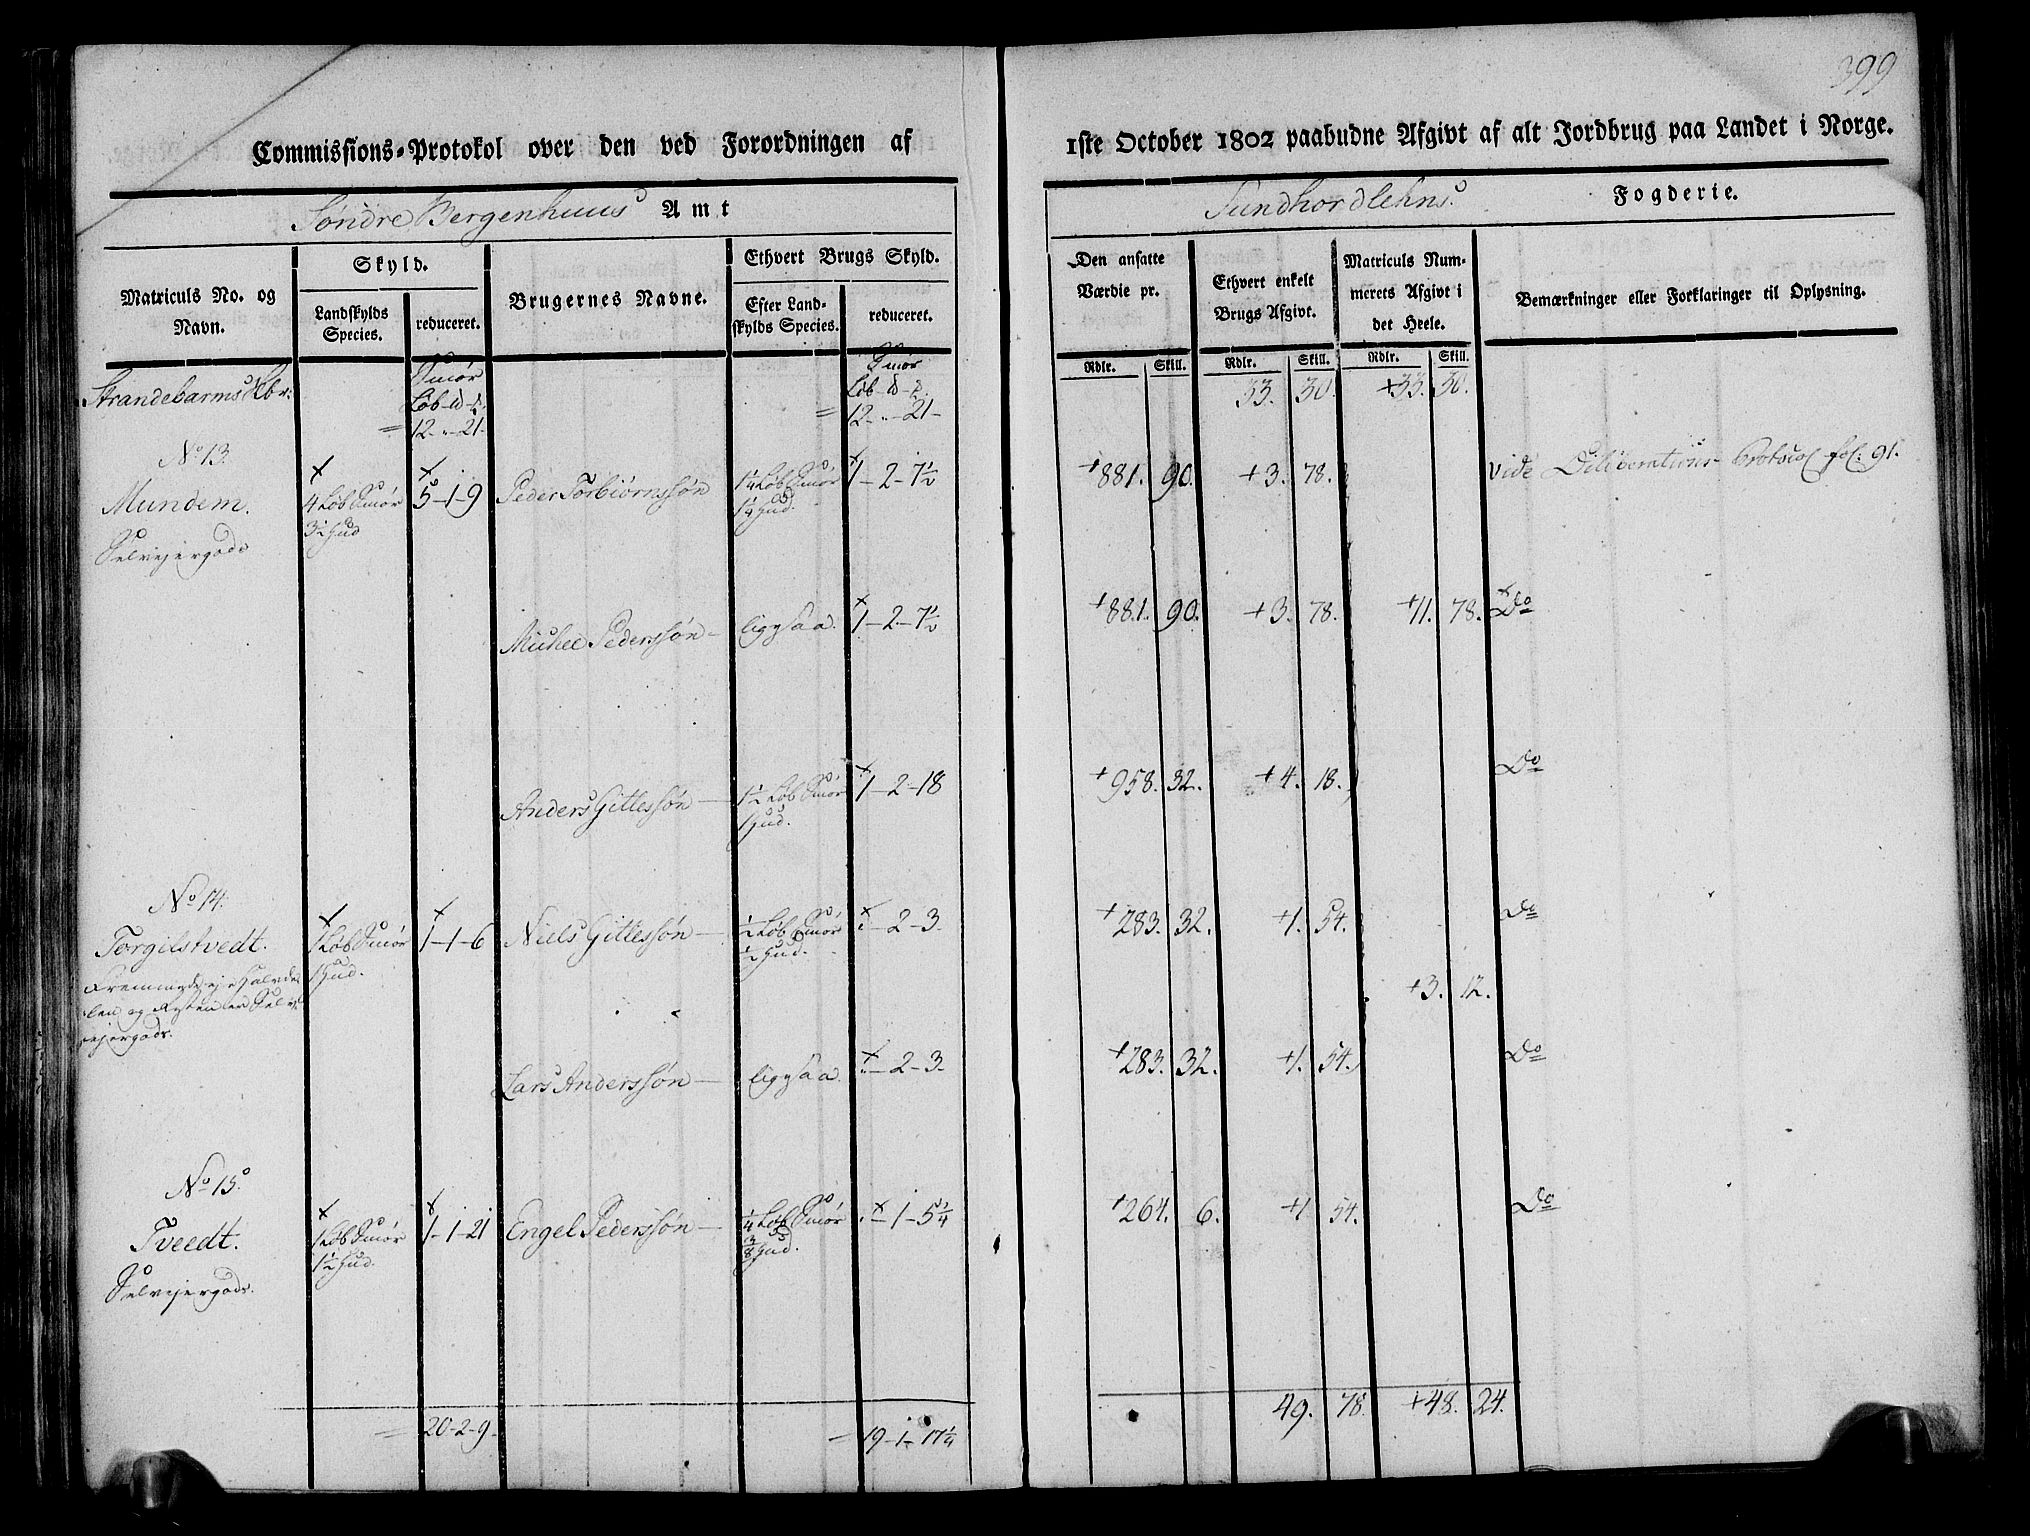 399
Commissions-Protokol over den ved Forordningen af
1ste October 1802 paabudne Afgivt af alt Jordbrug paa Landet i Norge.
Søndre Bergenhuus Amt
Sundhordlehns Fogderie.
Matriculs No. og Navn.
Skyld.
Landskylds Species.
reduceret.
Brugernes Navne.
Ethvert Brugs Skyld.
Efter Landskylds Species.
reduceret.
Den ansatte Værdie pr.
Ethvert enkelt Brugs Afgivt.
Matriculs Nummerets Afgivt i det Heele.
Bemærkninger eller Forklaringer til Oplysning.
Rdlr. Skill. Rdlr. Skill. Rdlr. Skill.
Strandebarms Smør Smør
Løb Løb 33. 30. +33. 30.
12-"-21- 12-"-21-
No 13.
Mundem. 4 Løb Smør 5-1-9 Peder Torbiørnssøn 1¼ Løb Smør 1-2-7½ +881. 90. +3. 78. vide Deliberations-Protocol fol: 91.
Selveiergods 3½ Hud 1¼ Hud.
Michel Pederssøn ligesaa. 1-2-7½ +881. 90. +3. 78. +11. 78. Do
Anders Gittlessøn 1½ Løb Smør 1-2-18 +958. 32. +4. 18. Do
1 Hud.
No 14.
Torgilstvedt. 1 Løb Smør 1-1-6 Niels Gitlessøn ½ Løb Smør "-2-3. +283. 32. +1. 54. Do
1 Hud. ½ Hud.
len og Resten er Selv- +3. 12.
ejergods.
Lars Anderssøn ligesaa "-2-3. +283. 32. +1. 54. Do
No 15.
Tveedt. 1 Løb Smør 1-1-21 Engel Pederssøn ¼ Løb Smør "-1-5¼ +264. 6. +1 54. Do
Selvejergods. 1½ Hud. ⅜ Hud.
20-2-9. 19-1-17¼ 49. 78. +48. 24.